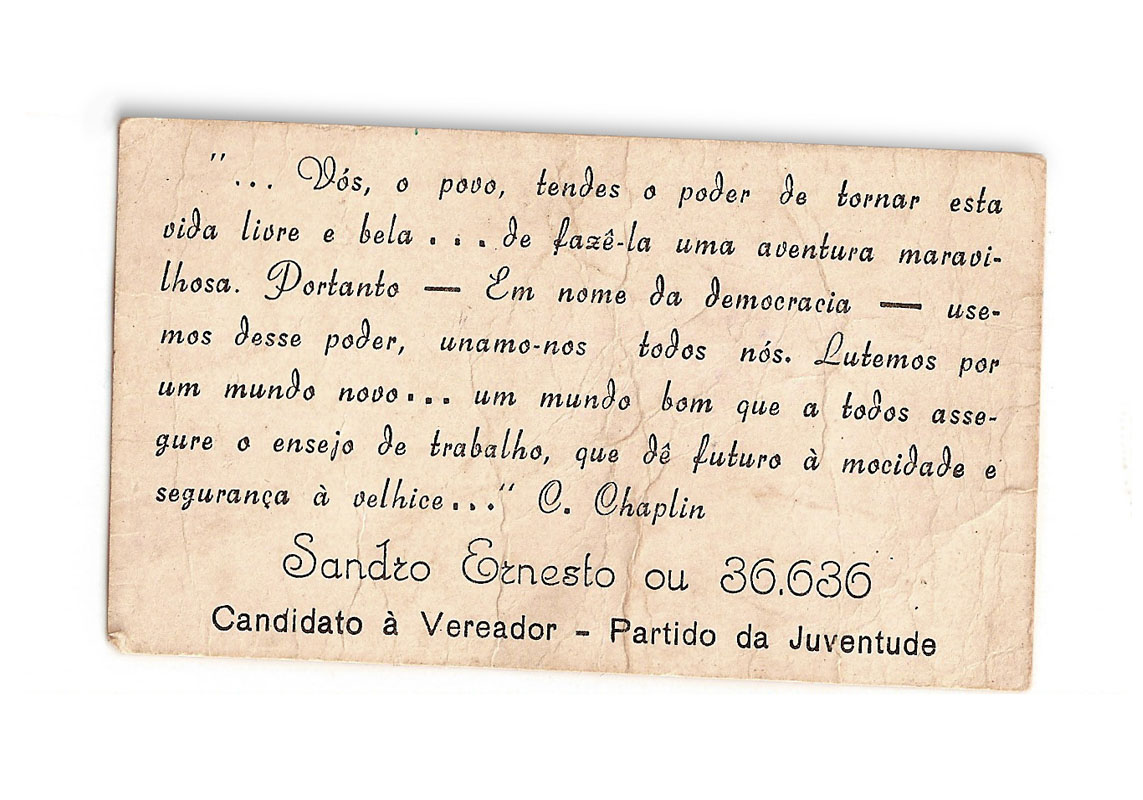 "... Vós, o povo, tendes o poder de tornar esta
vida livre e bela . . . de fazê-la uma aventura maravi-
lhosa. Portanto — Em nome da democracia — use-
mos desse poder, unamo-nos todos nós. Lutemos por
um mundo novo... um mundo bom que a todos asse-
gure o ensejo de trabalho, que dê futuro à mocidade e
segurança à velhice..." C. Chaplin
Sandro Ernesto ou 36.636
Candidato à Vereador - Partido da Juventude